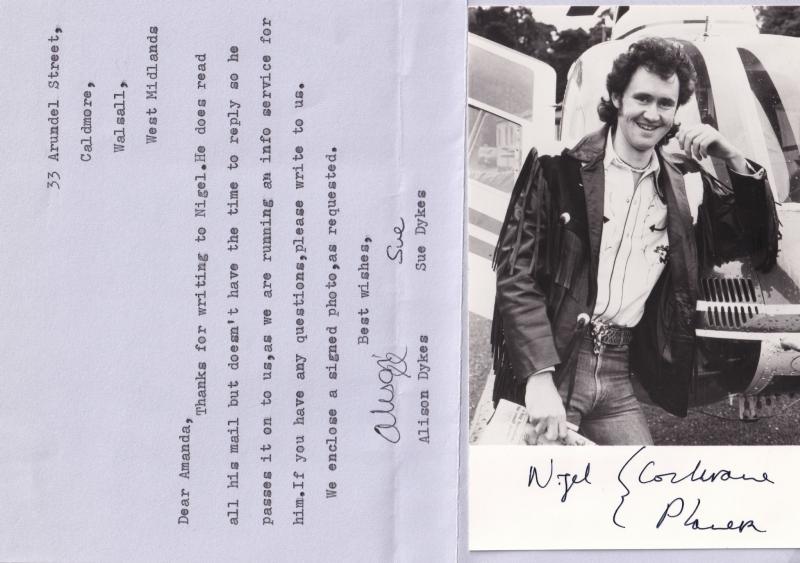 33 Arundel Street,
Caldmore,
Walsall,
West Midlands
Dear Amanda,
Thanks for writing to Nigel.He does read
all his mail but doesn't have the time to reply so he
passes it on to us,as we are running an info service for
him.If you have any questions,please write to us.
We enclose a signed photo,as requested.
Best wishes,
Alison Sue
Alison Dykes Sue Dykes
Nigel { Cochrane
Planer